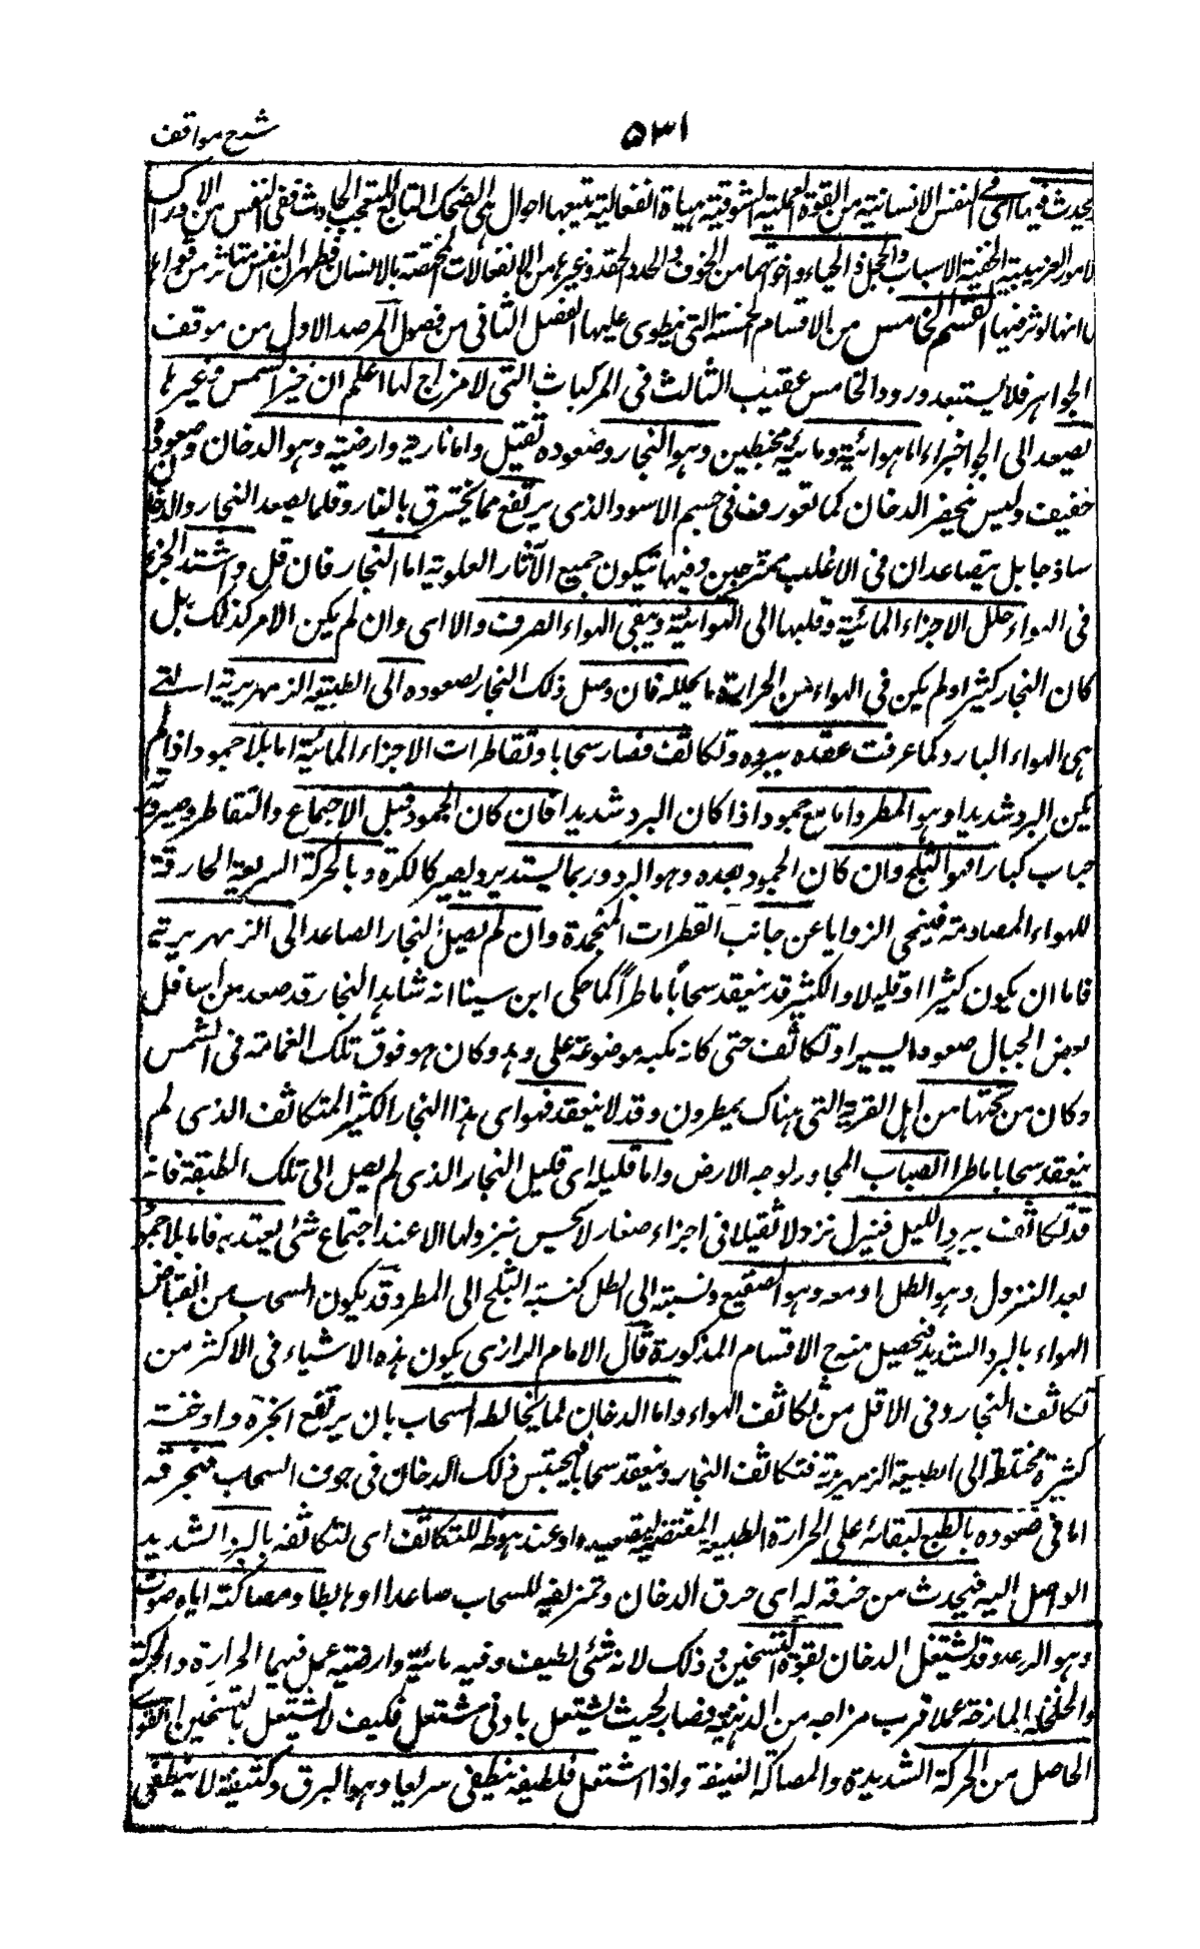 شرح مواقف
۵۳۱
يحدث فيها اى فى النفس الانسانية من القوة العملية الشوقية هيأة انفعالية يتبعها احوال هى الضحك التابع للتعجب الحادث فى النفس من الادراك
للامور الغريبة الخفية الاسباب والخجل والحياء واخواتها من الخوف والحقد وغيرها من الانفعالات المختصة بالانسان فظهر ان النفس متاثر من قواها
كما انها موثر فيها القسم الخامس من الاقسام الخمسة التى ينطوى عليها الفصل الثانى من فصول المرصد الاول من موقف
الجواهر فلا يستبعد ورود الخامس عقيب الثالث فى المركبات التى لا مزاج لها اعلم ان حر الشمس وغيرها
يصعد الى الجو اجزاء اما هوائية ومائية مختلطين وهو البخار وصعوده ثقيل واما نارية وارضية وهو الدخان وصعوده
خفيف وليس ينحصر الدخان كما تعورف فى جسم الاسود الذى يرتفع مما يحترق بالنار وقلما يصعد البخار والدخان
ساذجا بل يتصاعدان فى الاغلب ممتزجين وفيها تتكون جميع الآثار العلوية اما البخار فان قل واشتد الحر
فى الهواء حلل الاجزاء المائية وقلبها الى الهوائية ويبقى الهواء الصرف والا اى وان لم يكن الامر كذلك بل
كان البخار كثيرا ولم يكن فى الهواء من الحرارة ما يحلله فان وصل ذلك البخار بصعوده الى الطبقة الزمهريرية التى
هى الهواء البارد كما عرفت عقده ببرده وتكاثف فصار سحابا وتقاطرت الاجزاء المائية اما بلا جمود اذا لم
يكن البرد شديدا وهو المطر واما مع جمود اذا كان البرد شديدا فان كان الجمود قبل الاجتماع والتقاطر وصيرورته
حباب كبارا فهو الثلج وان كان الجمود بعده وهو البرد وربما يستدير ويصير كالكرة وبالحركة السريعة الخارقة
للهواء المصادمة فينمحى الزوايا عن جانب القطرات المنجمدة وان لم يصل البخار الصاعد الى الزمهريرية
فاما ان يكون كثيرا او قليلا والكثير قد ينعقد سحابا ماطرا كما حكى ابن سينا انه شاهد البخار قد صعد من اسافل
بعض الجبال صعودا يسيرا وتكاثف حتى كانه مكبة موضوعة على وهدة وكان هو فوق تلك الغمامة فى الشمس
وكان من تحتها من اهل القرية التى هناك يمطرون وقد لا ينعقد فهو اى هذا البخار الكثير المتكاثف الذى لم
ينعقد سحابا ماطرا الضباب المجاور لوجه الارض واما قليله اى قليل البخار الذى لم يصل الى تلك الطبقة فانه
قد تكاثف ببرد الليل فينزل نزولا ثقيلا فى اجزاء صغار لا يحس بنزولها الا عند اجتماع شئ يعتد به فاما بلا جمود
بعد النزول وهو الطل او معه وهو الصقيع ونسبته الى الطل كنسبة الثلج الى المطر وقد يكون السحاب من انقباض
الهواء بالبرد الشديد فيحصل منه ح الاقسام المذكورة قال الامام الرازى يكون هذه الاشياء فى الاكثر من
تكاثف البخار وفى الاقل من تكاثف الهواء واما الدخان فربما يخالطه السحاب بان يرتفع ابخرة وادخنة
كثيرة مختلطة الى الطبقة الزمهريرية فتكاثف البخار وينعقد سحابا فيحتبس ذلك الدخان فى جوف السحاب فيخرقه
اما فى صعوده بالطبع لبقائه على الحرارة الطبيعية المقتضية لتصعيده او عند هبوطه للتكاثف اى لتكاثفه بالبرد الشديد
الواصل اليه فيحدث من خرقه له اى خرق الدخان وتمزيقه للسحاب صاعدا او هابطا ومصاكته اياه صوت
وهو الرعد وقد يشتعل الدخان لقوة التسخين وذلك لانه شئ لطيف وفيه مائية وارضية عمل فيهما الحرارة والحركة
والخلخلة المازجة عملا قرب مزاجه من الدهنية فصار بحيث يشتعل بادنى مشتعل فكيف لا يشتعل بالتسخين القوى
الحاصل من الحركة الشديدة والمصاكة العنيفة واذا اشتعل فلطيفه ينطفى سريعا وهو البرق وكثيفه لا ينطفى